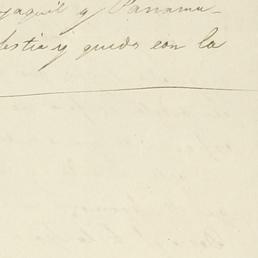 yaquil y Panamá
lestia y quedo con la